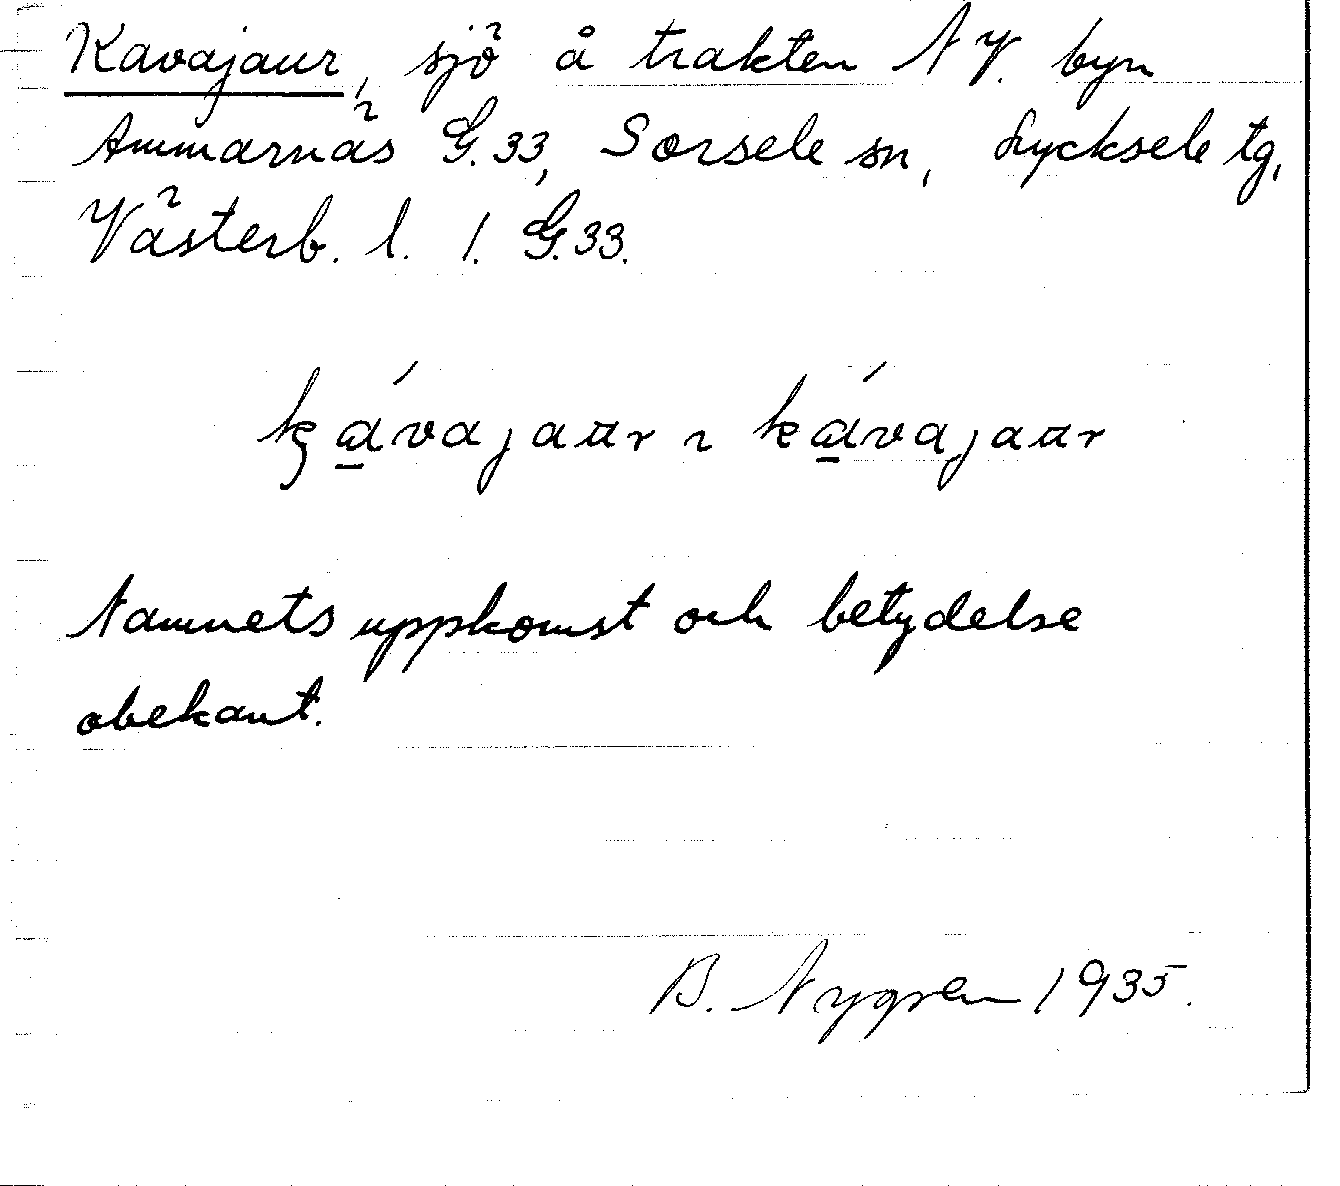 Kavajaur, sjö å trakten NV. byn
Ammarnäs G.33, Sorsele sn, Lycksele tg,
Västerb. l. 1. G.33.
ḱá̱vajaur ~ ká̱vajaur
Namnets uppkomst och betydelse
obekant.
B. Nygren 1935.